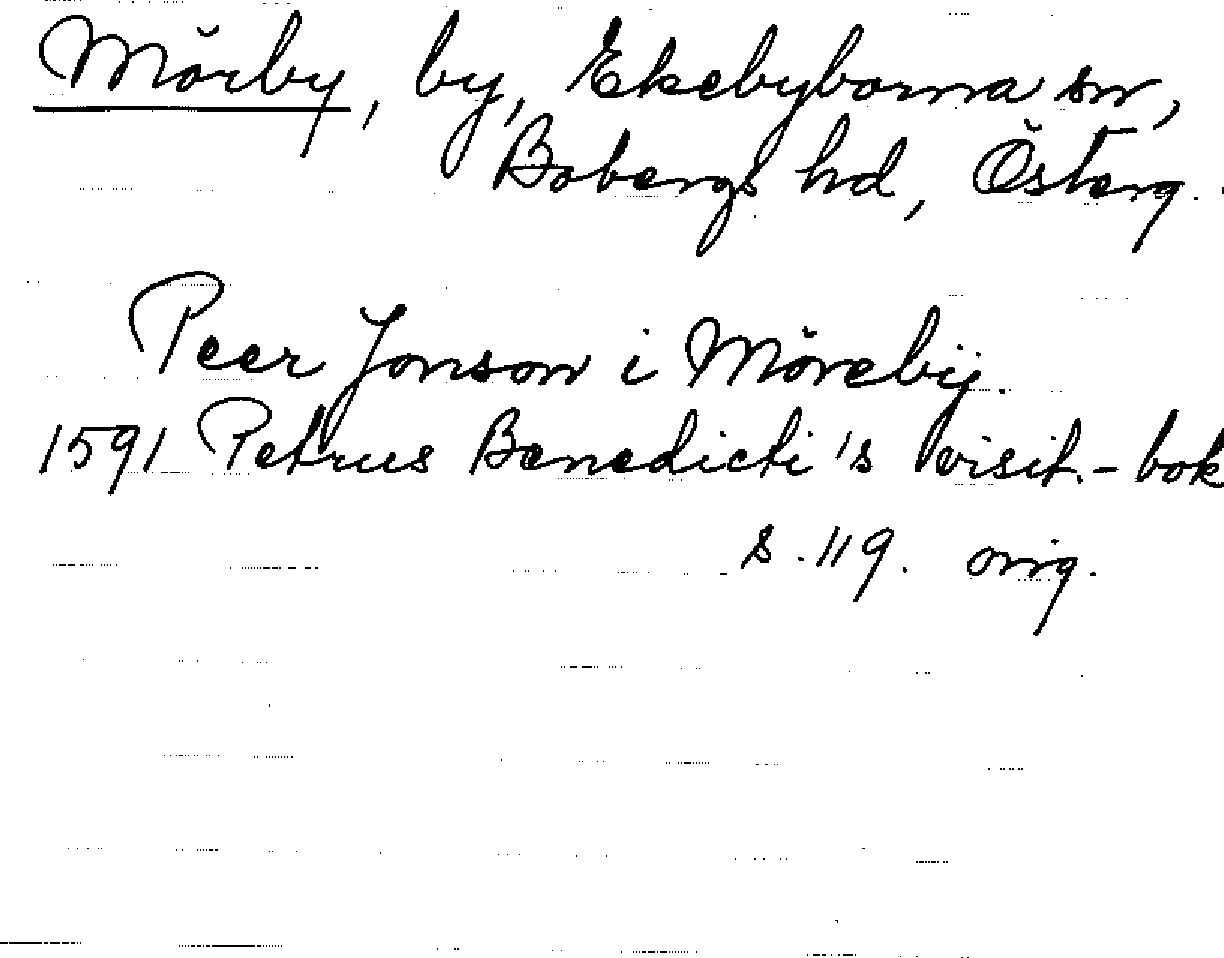 Mörby, by, Ekebyborna sn,
Bobergs hd, Österg.
Peer Jonson i Mörebÿ.
1591 Petrus Benedicti's visit.-bok
s. 119. orig.